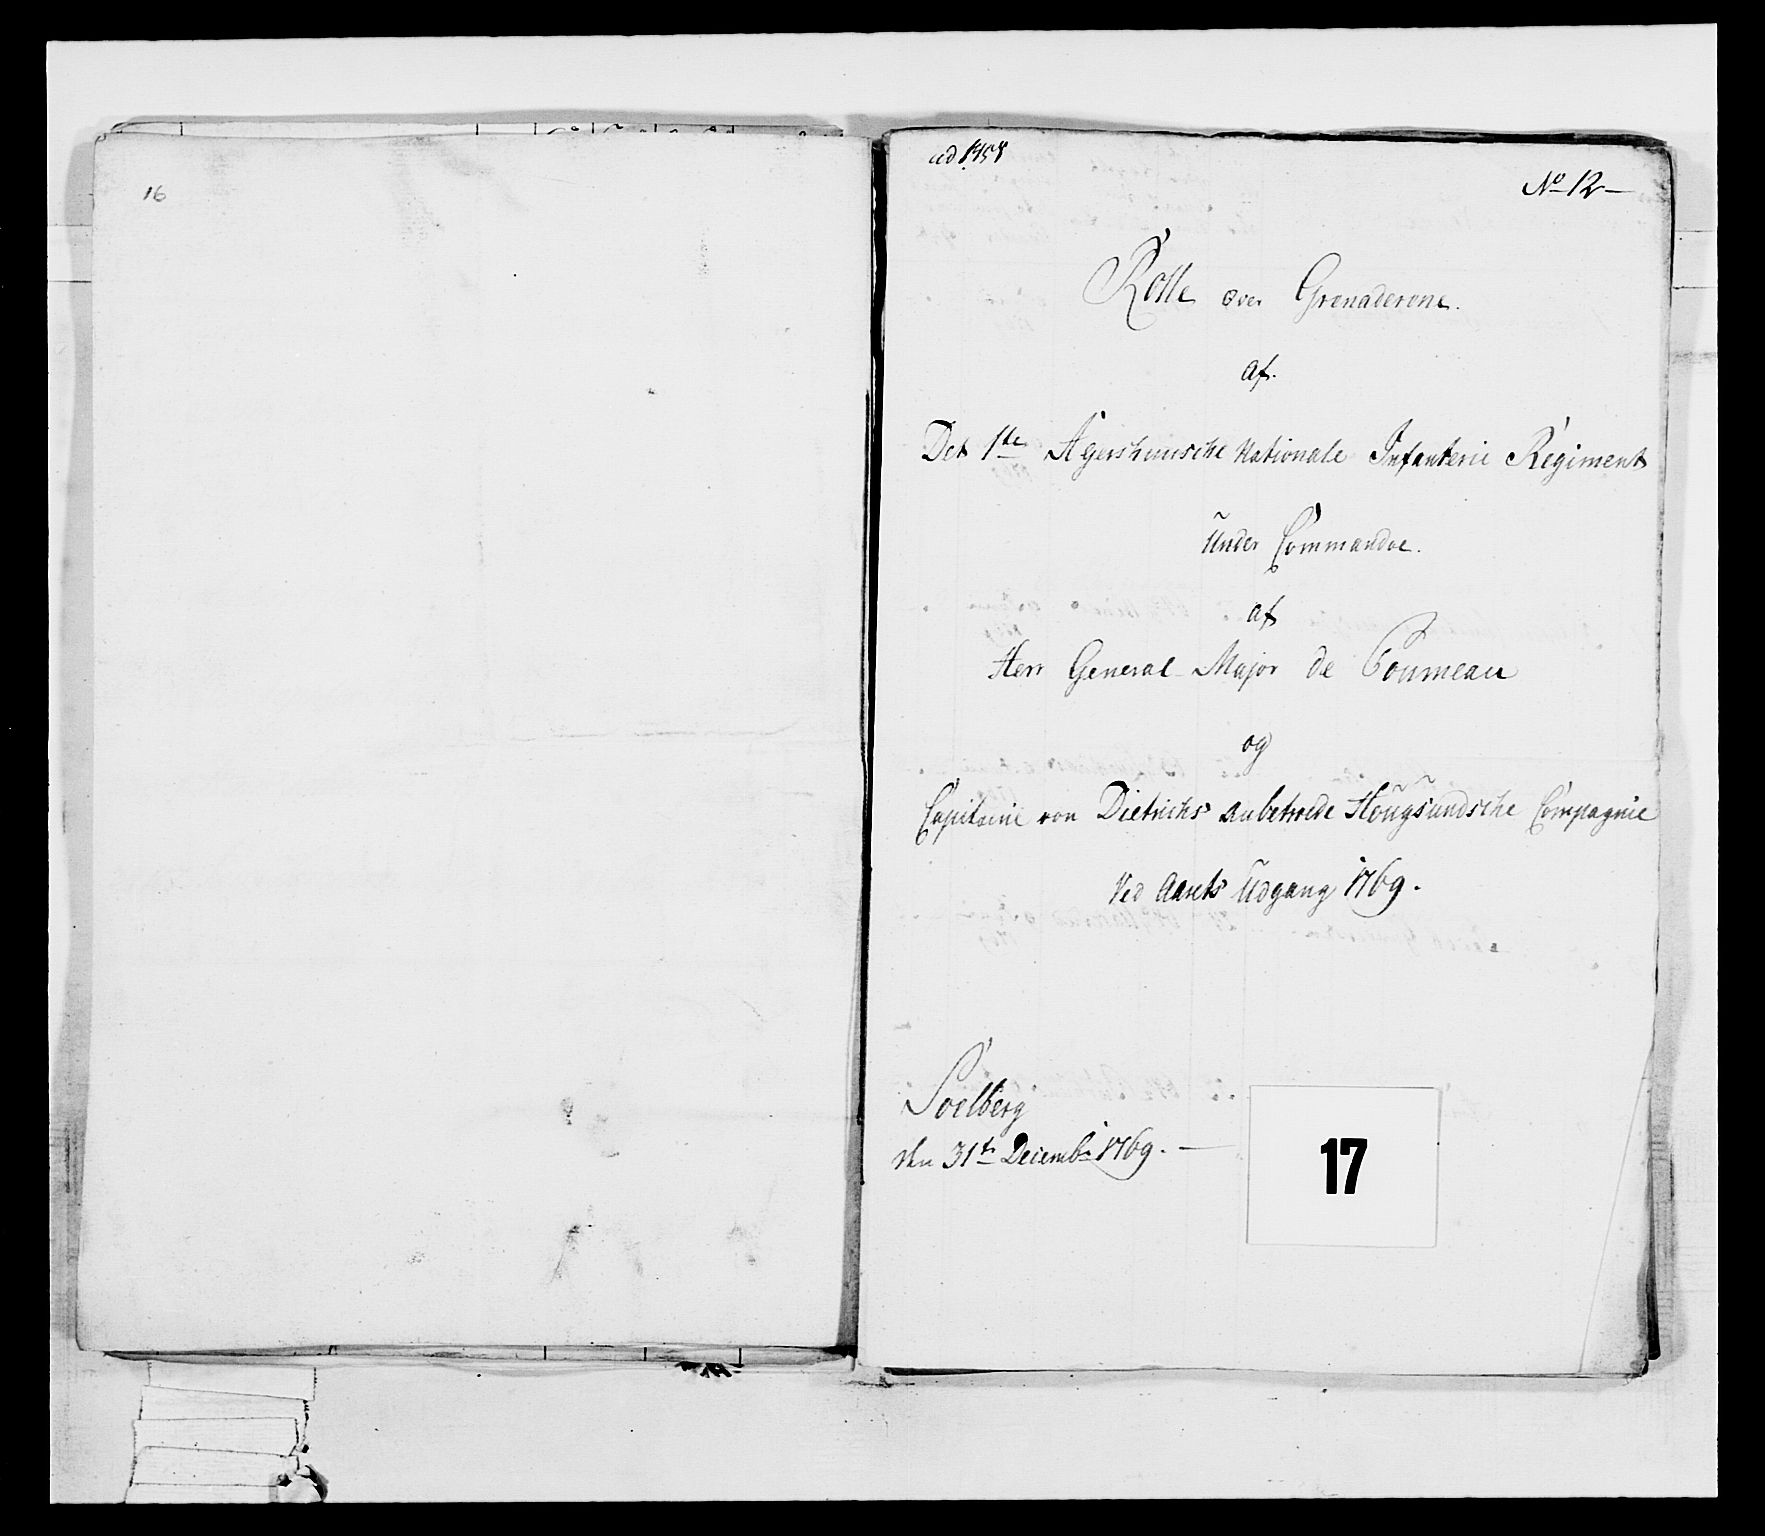 16
ad 1758
No 12
Rolle over Grenaderene.
af.
Det 1te Agershuusche Nationale Infanterie Regiment
Under Commandoe.
af
Herr General Major de Coumeau
og
Capitaine von Dietrichs anbetroede Hougsundsche Compagnie
Ved Aarets Udgang 1769.
Soelberg
den 31te Decembr 1769.
17